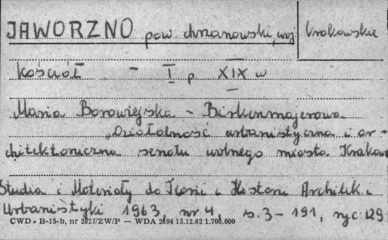 JAWORZNO pow. chrzanowski, woj. krakowskie
Kościół - I p. XIX w
Maria Borowiejska - Birkenmajerowa
"Działalność urbanistyczna i ar-
chitektoniczna senatu wolnego miasta Krakowa
Studia i Materiały do Teorii i Historii Architek. i
Urbanistyki 1963, nr 4, s. 3-191, ryc. 129
CWD - B-15-b, nr 2827/ZW/P — WDA 2694 13.12.62 1.700.000